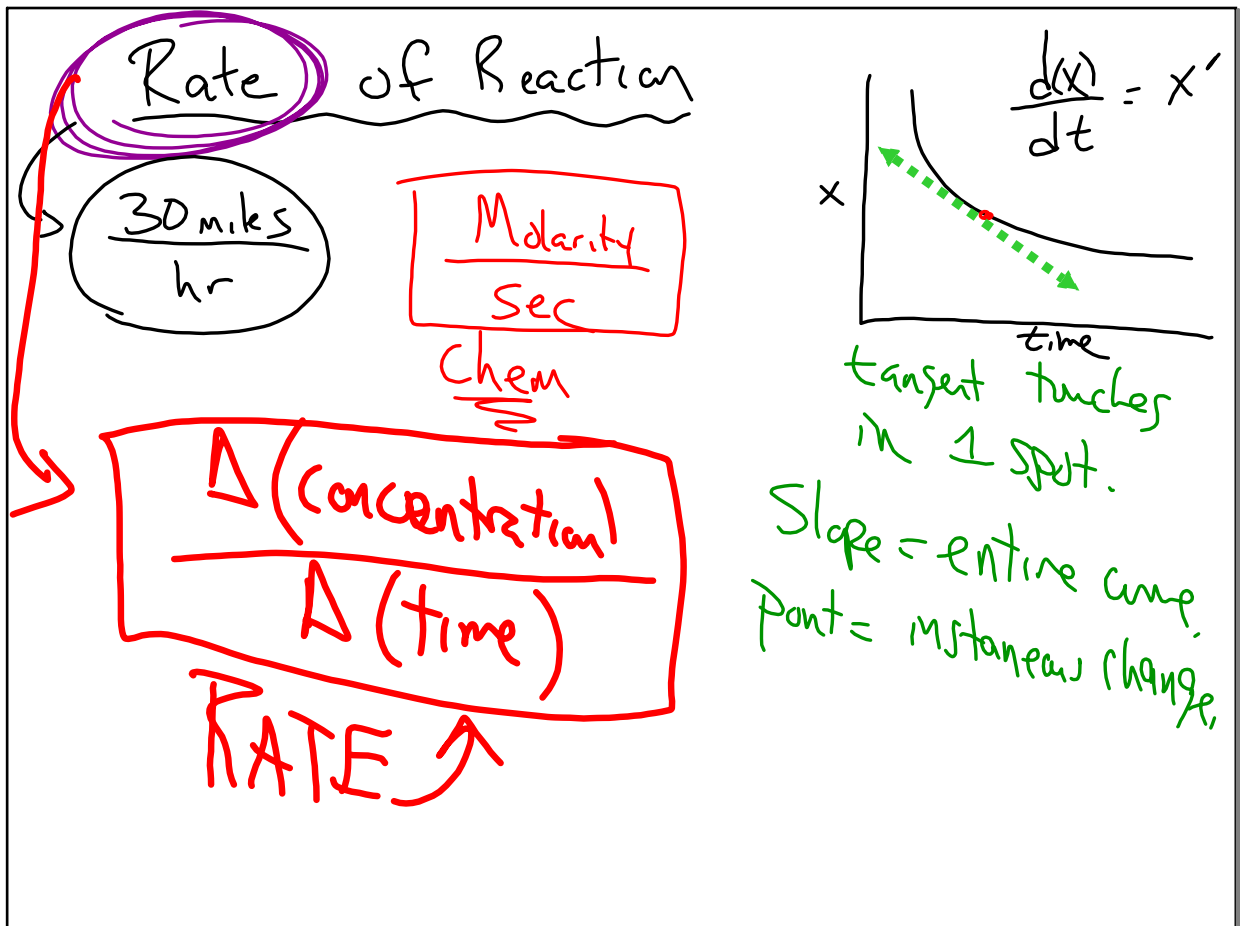 Rate of Reaction
30 miles
hr
Molarity
sec
Chem
Δ(concentration)
Δ(time)
RATE
d(x)
dt
= x′
x
time
tangent touches
in 1 spot.
Slope = entire curve.
Point = instaneous change.